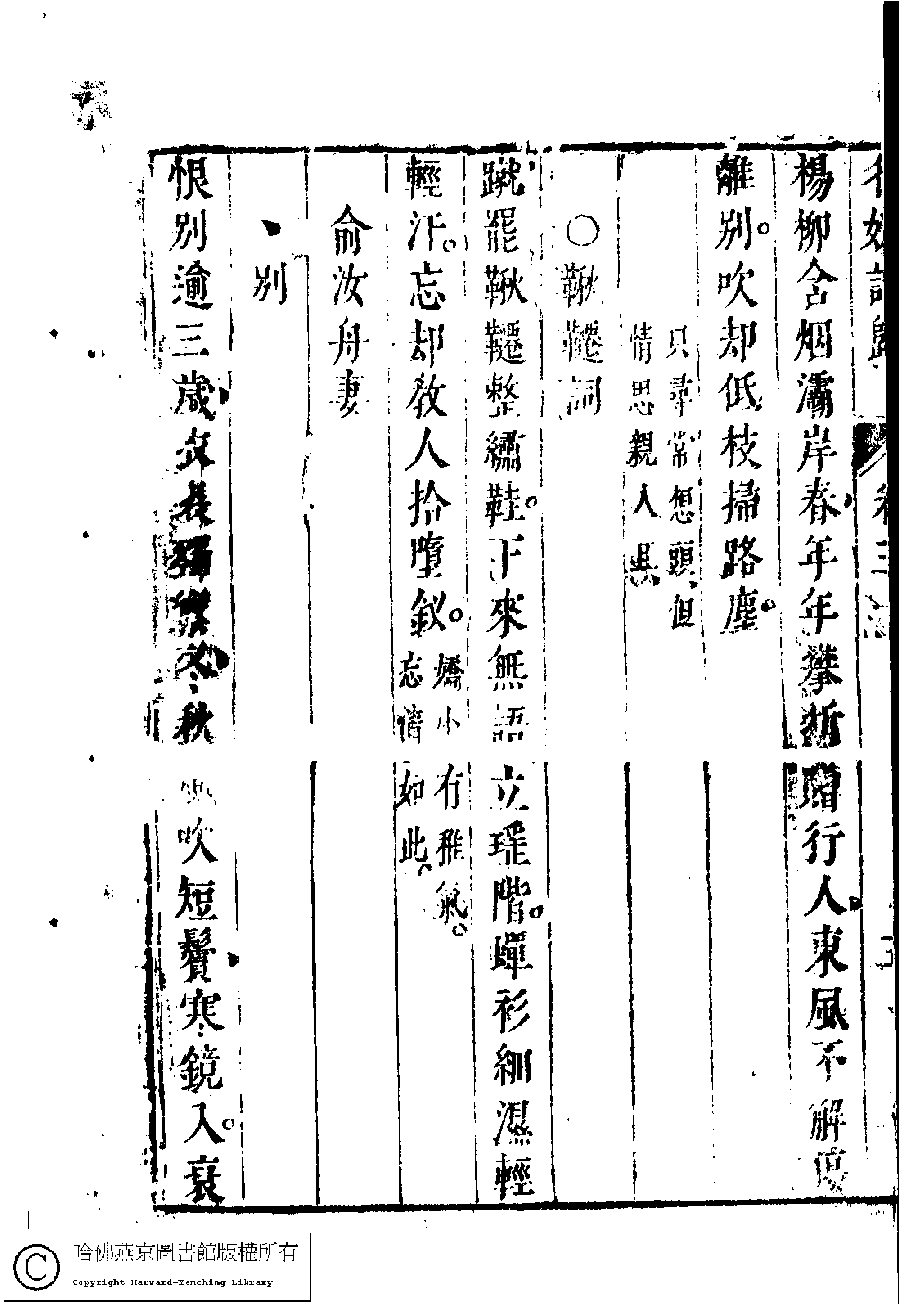 楊柳含烟灞岸春年年攀折贈行人東風不解傷
離別吹却低枝掃路塵
只尋常想頭但
情思親人異
○鞦韆詞
蹴罷鞦韆整繡鞋下來無語立瑤階蟬衫細濕輕
輕汗忘却教人拾墮釵
嬌小有稚氣
忘情如此
俞汝舟妻
別
恨別逾三歲衣長獨禦冬秋吹短鬢寒鏡入衰
哈佛燕京圖書館版權所有
Copyright Harvard-Yenching Library